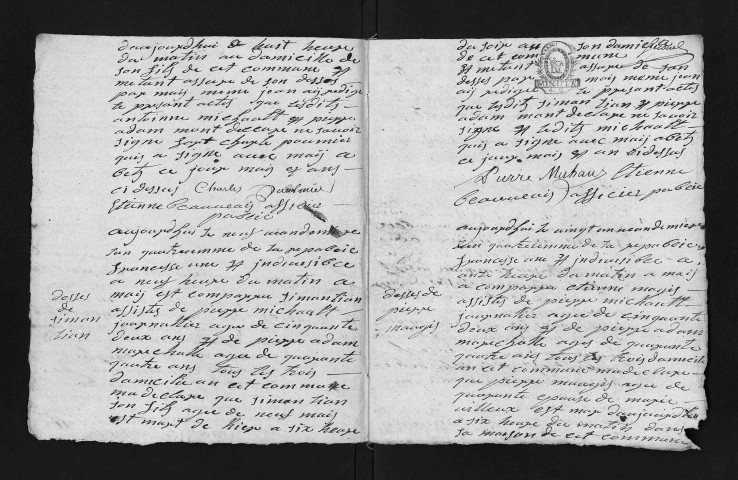 daujourdhui a huit heure
du matin au domicille de
son fils de cet commune et
metant assure de son desses
par mais meme jean ai redige
le present actes que lesdits
antoinne michault et pierre
adam mont declare ne savoir
signe sauf charle paumier
quis a signe avec mais a
betz ce jour mais et ans
ci dessus Charles Paulmier
Etienne Beauvais afficier
public
aujourdhui le neuf
lan quatrieme de la repablie
francesse une et indiuisible
a neuf heure du matin a
mais est comparru simon lian
assistes de pierre michault
journallier agee de cinquante
deux ans et de pierre adam
marechalle agee de quarante
quatre ans tous les trois
domicille an cet commune
madeclare que simon lian
son fils agee de neuf mais
est mart de hier a six heure
desses
de
simon
lian
du soir au son domicille
de cet commune
et metant assure de son
desses par mais meme jean
ai redige le present actes
que lesdits simon lian et pierre
adam mont declare ne savoir
signe et ledits michault
quis a signe avec mais a betz
ce jour mais et an ci dessus
Pierre Etienne
Beauvais afficier public
aujourdhui le vingt un
lan quatrieme de la repablie
francesse une et indiuisible a
heure du matin a mais
a comparru etienne maugis
assistes de pierre michault
journallier agee de cinquante
deux ans et de pierre adam
marechalle agee de quarante
quatre ans tous les trois domicille
an cet commune madeclare
que pierre maugis agee de
quarante epause de marie
est mart daujourdhui
a six heure du matin dans
sa maison de cet commune
desses de
pierre
maugis